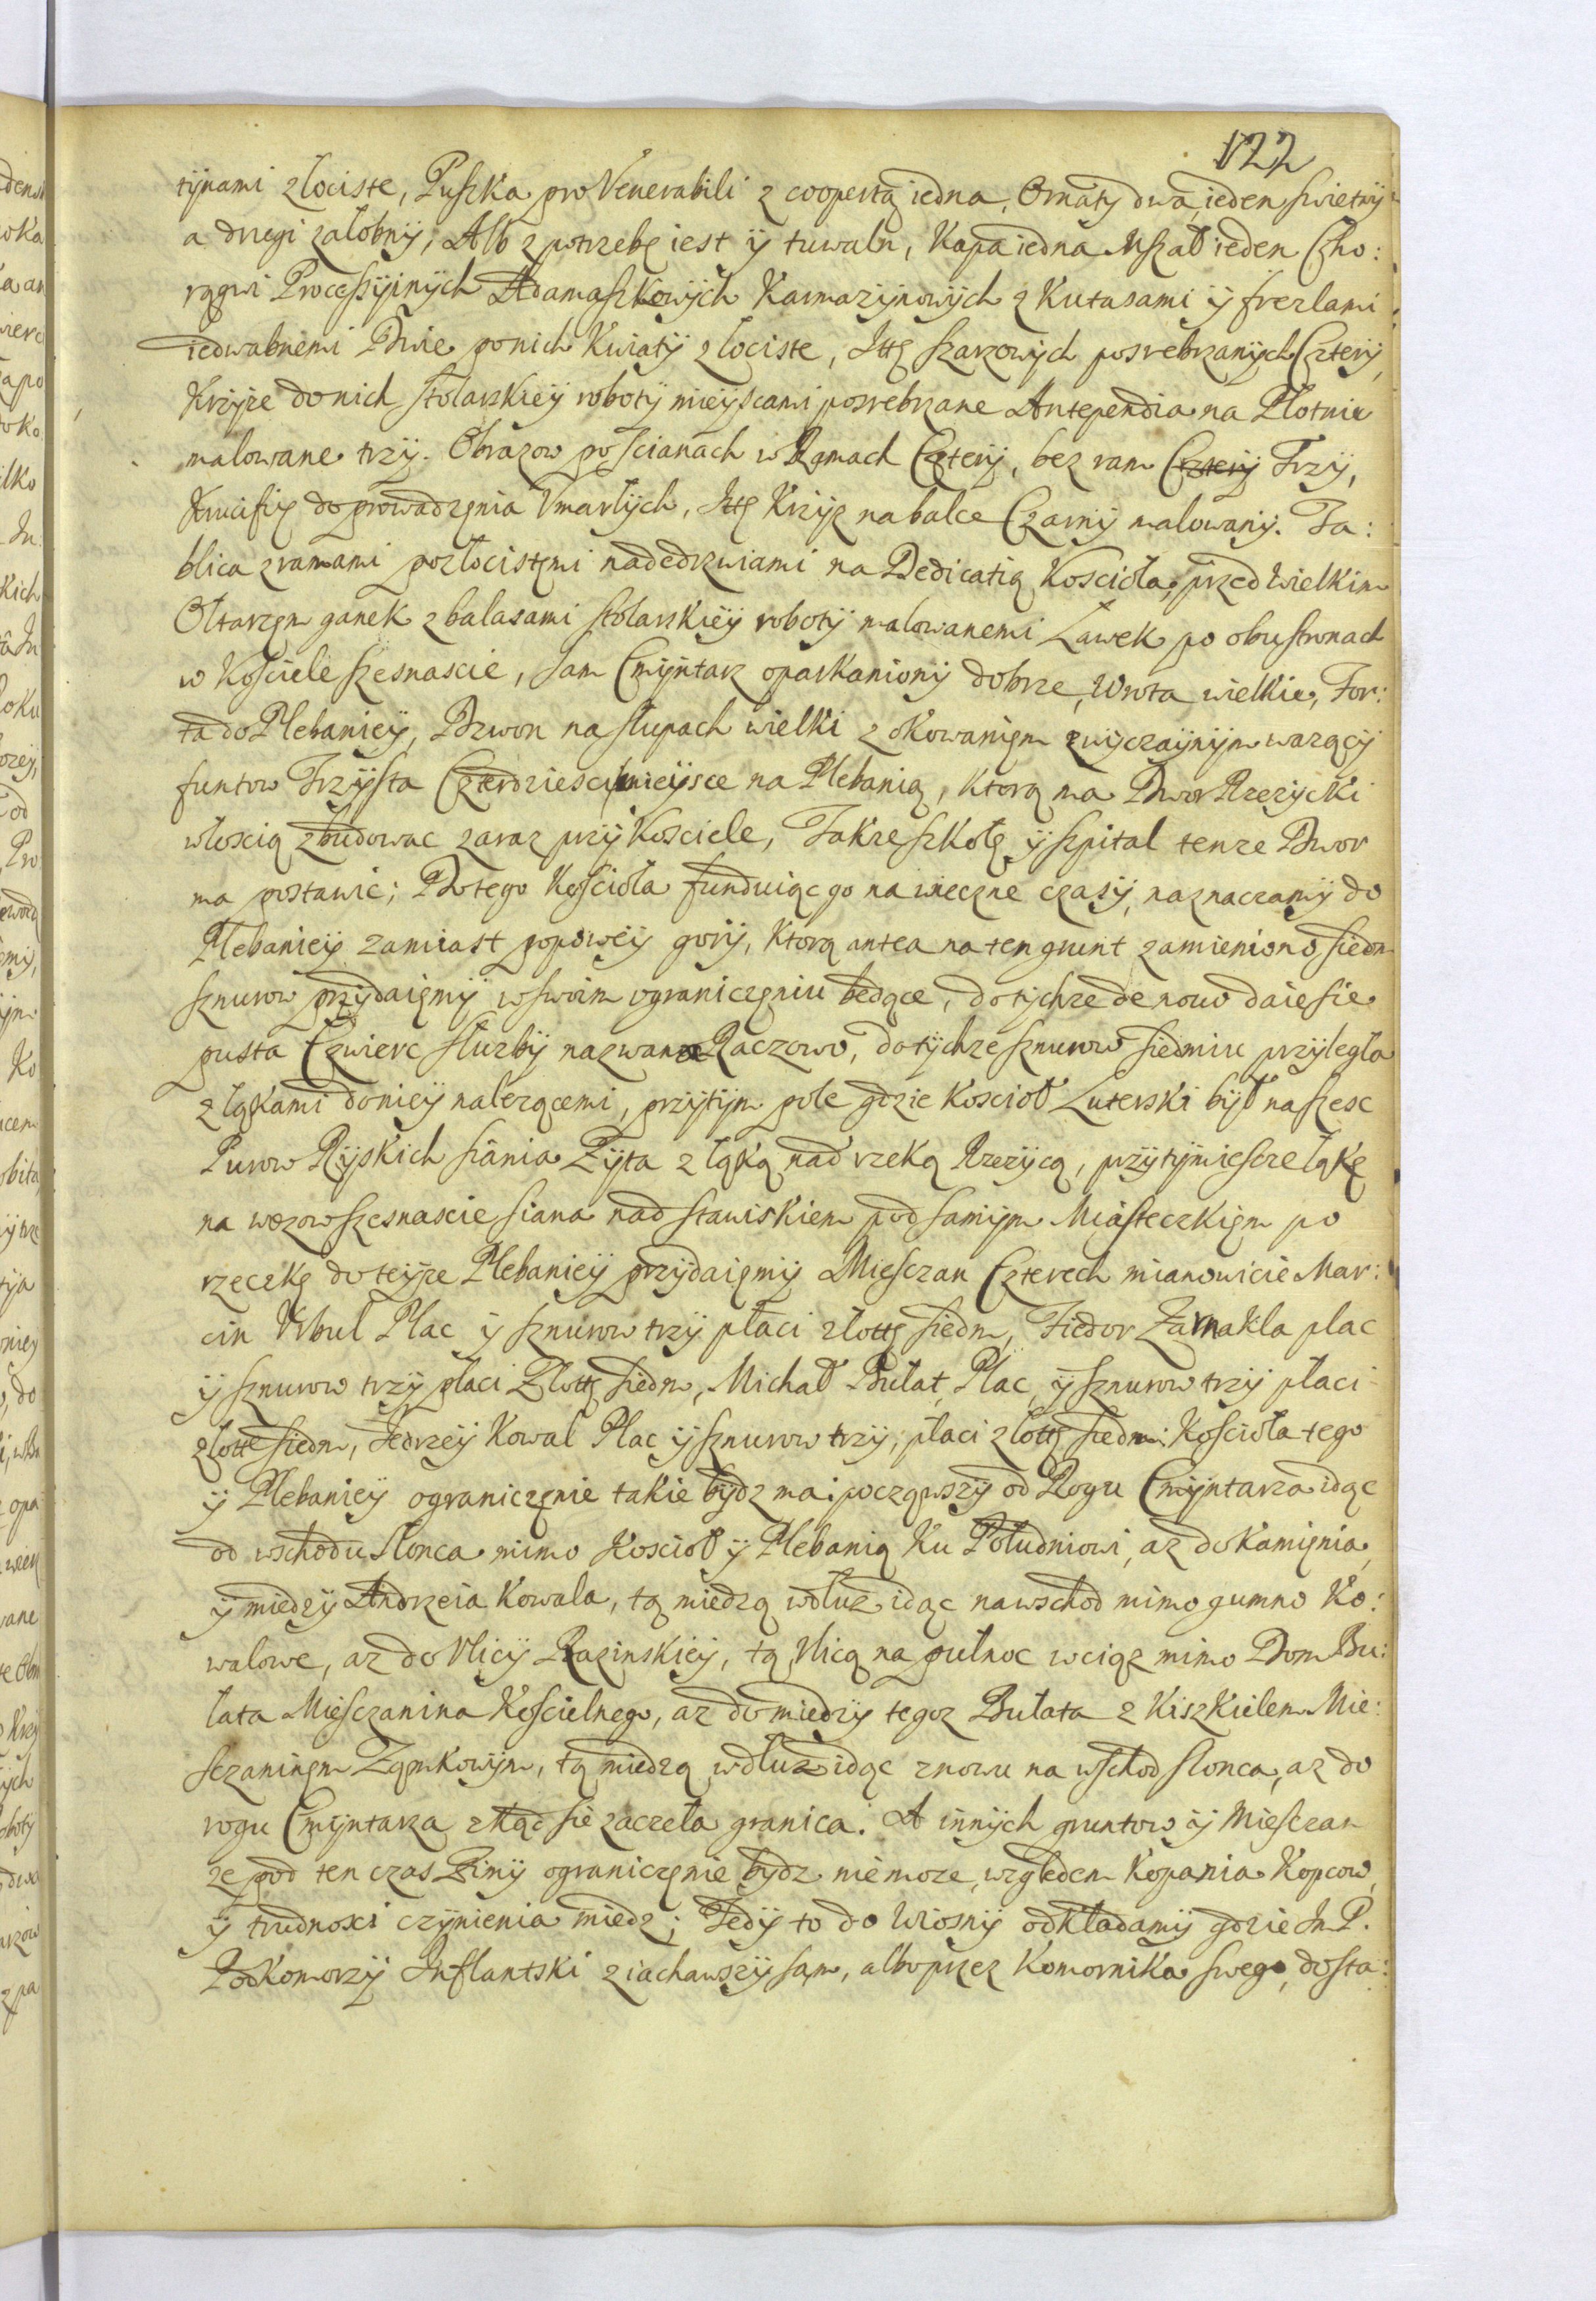 122
tÿnami złociste, Puszka pro Venerabili z coopertą iedna, Ornaty dwa, ieden swietnÿ
a drugi załobnÿ, Alb z potrzebę iest ÿ tuwaln, Kapa iedna Mszał ieden Cho:
rągwi Processÿinÿch Adamaszkowÿch Karmazÿnowÿch z Kutasami ÿ frezlami
iedwabnemi Dwie ponich Kwiatÿ złociste, Ittę szarzowÿch posrebrzanÿch Czterÿ,
Krzÿże donich stolarskieÿ robotÿ mieÿscami posrebrzane Antependia na Płotnie
malowane trzÿ. Obrazow po scianach w Ramach Czterÿ, bez ram Czterÿ Trzÿ,
Krucifix do prowadzęnia Vmarłÿch, Ittę Krzÿż na balce Czarnÿ malowanÿ. Ta:
blica z ramami pozłocistęmi nadedrzwiami na Dedicatią Koscioła, przed Wielkim
Ołtarzęm ganek z balasami stolarskieÿ robotÿ malowanemi Ławek po obu stronach
w Kosciele szesnascie, sam Cmÿntarz oparkanionÿ dobrze, Wrota wielkie, For:
ta do Plebanieÿ, Dzwon na słupach wielki z okowanięm zwÿczaÿnÿm wazącÿ
funtow Trzÿsta Czterdziesci mieÿsce na Plebanią, Ktorą ma Dwor Rzezÿcki
włoscią zbudowac zaraz przÿ Kosciele, Takze szkołę ÿ szpital tenze Dwor
ma postawic; Do tego Koscioła funduiąc go na wieczne czasÿ, naznaczamÿ do
Plebanieÿ zamiast popoweÿ gorÿ, Ktorą antea na ten grunt zamieniono, siedm
sznurow przÿdaięmÿ w swoim ograniczęniu będące, do tÿchze de nowo daie sie
pusta Czwierc słuzbÿ nazwana Raczowo, do tÿchze sznurow siedmiu przÿległa
z łąkami donieÿ nalezącemi, przÿtÿm pole gdzie Koscioł Luterski bÿł na szesc
Purow Rÿskich siania Zÿta z łąką nad rzeką Rzezÿcą, przÿtÿmiescze łąkę
na wozow szesnascie siana nad stawiskiem pod samÿm Miasteczkięm po
rzeczkę do teÿże Plebanieÿ przÿdaięmÿ Miesczan Czterech mianowicie Mar:
cin Vrbul Plac ÿ sznurow trzÿ płaci złottę siedm, Fiedor Zarnakla plac
ÿ sznurow trzÿ płaci Złottę siedm, Michał Bułat, Plac, ÿ sznurow trzÿ płaci
złotte siedm, Jedrzeÿ Kowal Plac ÿ sznurow trzÿ, płaci złottę siedm: Koscioła tego
ÿ Plebanieÿ ograniczęnie takie bÿdz ma: począwszÿ od Rogu Cmÿntarza idąc
od wschodu słonca mimo Koscioł ÿ Plebanią Ku Południowi, az do Kamięnia,
ÿ miedzÿ Andrzeia Kowala, tą miedzą wdłuż idąc na wschod mimo gumno Ko:
walowe, az do Vlicÿ Razinskieÿ, tą Vlicą na pułnoc wciąz mimo Dom Bu:
łata Miesczanina Koscielnego, az do miedzÿ tegoz Bułata z Kiszkielem Mie:
sczaninęm Zęmkowÿm, tą miedzą wdłuż idąc znowu na wschod słonca, az do
rogu Cmÿntarza zkąd sie zaczeła granica. A innÿch gruntow ÿ Miesczan
ze pod ten czas Zimÿ ograniczęnie bÿdz niemoze, wzgledem Kopania Kopcow,
ÿ trudnosci czÿnienia miedz; Tedÿ to do Wiosnÿ odkładamÿ gdzie Jm P.
Podkomorzÿ Inflantski ziachawszÿ sąm, albo przez Komornika swego, dosta: